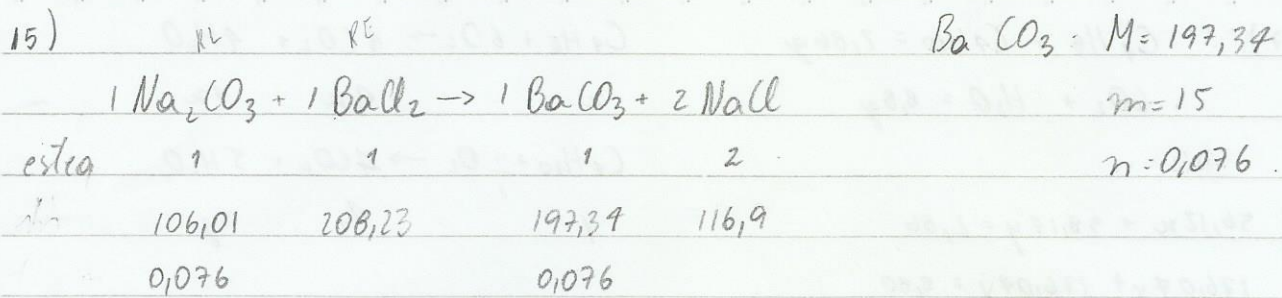 15) RL RE BaCO3 · M=197,34
1 Na2CO3 + 1 BaCl2 → 1 BaCO3 + 2 NaCl m=15
esteq 1 1 1 2 n=0,076
106,01 208,23 197,34 116,9
0,076 0,076